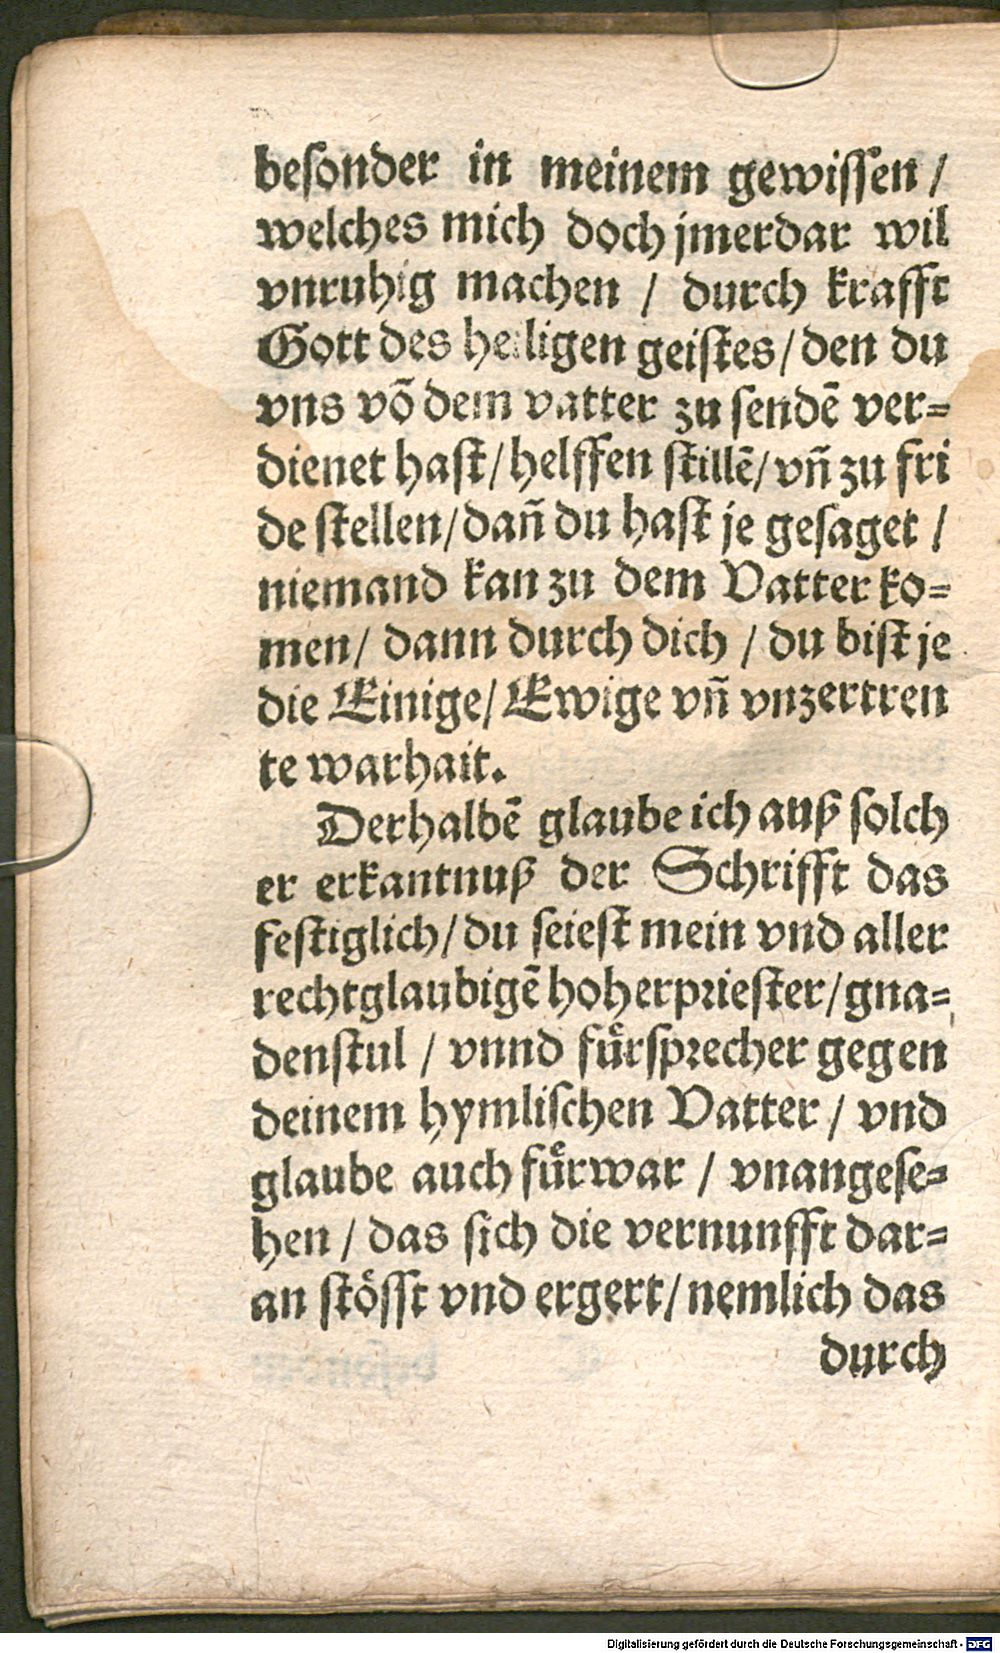 besonder in meinem gewissen /
welches mich doch jmerdar wil
vnruhig machen / durch krafft
Gott des heiligen geistes / den du
vns võ dem vatter zu sendẽ ver=
dienet hast / helffen stillẽ / vñ zu fri
de stellen / dañ du hast je gesaget /
niemand kan zu dem Vatter ko=
men / dann durch dich / du bist je
die Einige / Ewige vñ vnzertren
te warhait.
Derhalbẽ glaube ich auß solch
er erkantnuß der Schrifft das
festiglich / du seiest mein vnd aller
rechtglaubigẽ hoherpriester / gna=
denstul / vnnd fuͤrsprecher gegen
deinem hymlischen Vatter / vnd
glaube auch fuͤrwar / vnangese=
hen / das sich die vernunfft dar=
an stoͤsst vnd ergert / nemlich das
durch
Digitalisierung gefördert durch die Deutsche Forschungsgemeinschaft - DFG